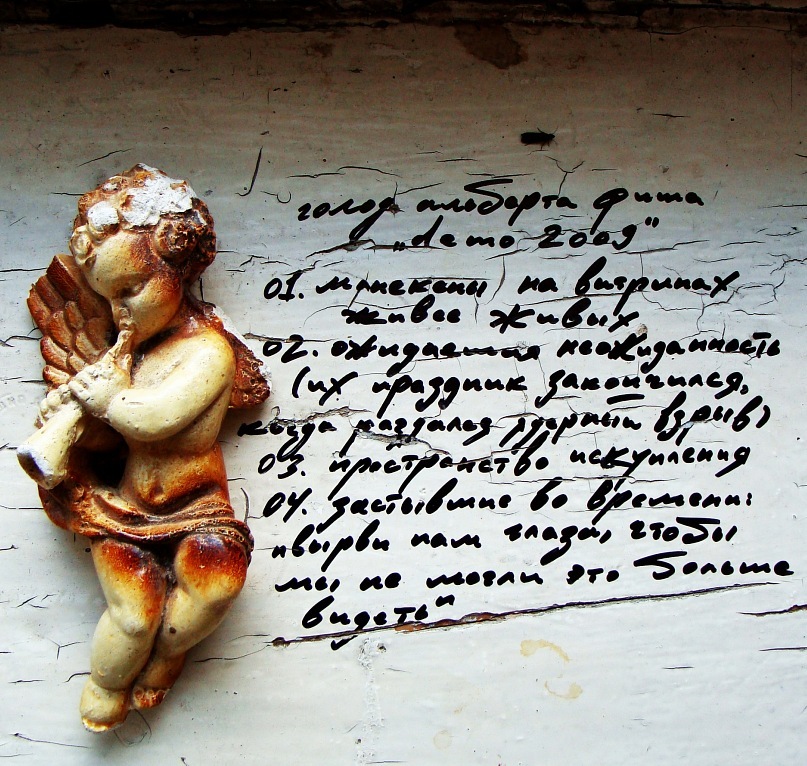 голод альберта фиша
„demo 2009"
01. манекены на витринах
живее живых
02. ожидаемая неожиданность
(их праздник закончился,
когда раздался ядерный взрыв)
03. пространство искупления
04. застывшие во времени:
„вырви нам глаза, чтобы
мы не могли это больше
видеть"